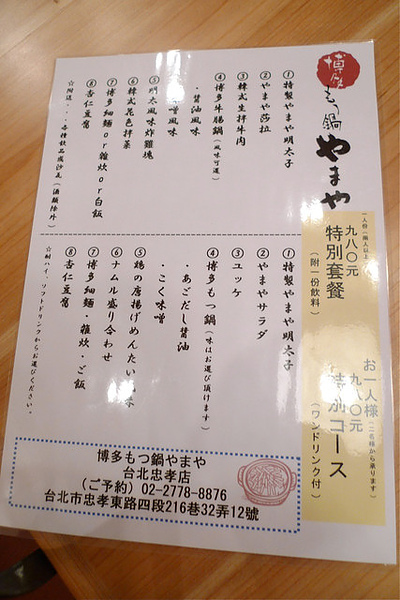 博多
もつ鍋
やまや
一人份(兩人以上)
九八〇元
特別套餐
(附一份飲料)
お一人様(二名様から承ります)
九八〇元
特別コース
(ワンドリンク付)
①特製やまや明太子
②やまや莎拉
③韓式生拌牛肉
④博多牛腸鍋(風味可選)
・醬油風味
噌風味
⑤明太風味炸雞塊
⑥韓式花色拌菜
⑦博多細麵or雜炊or白飯
⑧杏仁豆腐
①特製やまや明太子
②やまやサラダ
③ユッケ
④博多もつ鍋(味はお選び頂けます)
・あごだし醤油
・こく味噌
⑤鶏の唐揚げめんたい風味
⑥ナムル盛り合わせ
⑦博多細麺・雑炊・ご飯
⑧杏仁豆腐
博多もつ鍋やまや
台北忠孝店
(ご予約) 02-2778-8876
台北市忠孝東路四段216巷32弄12號